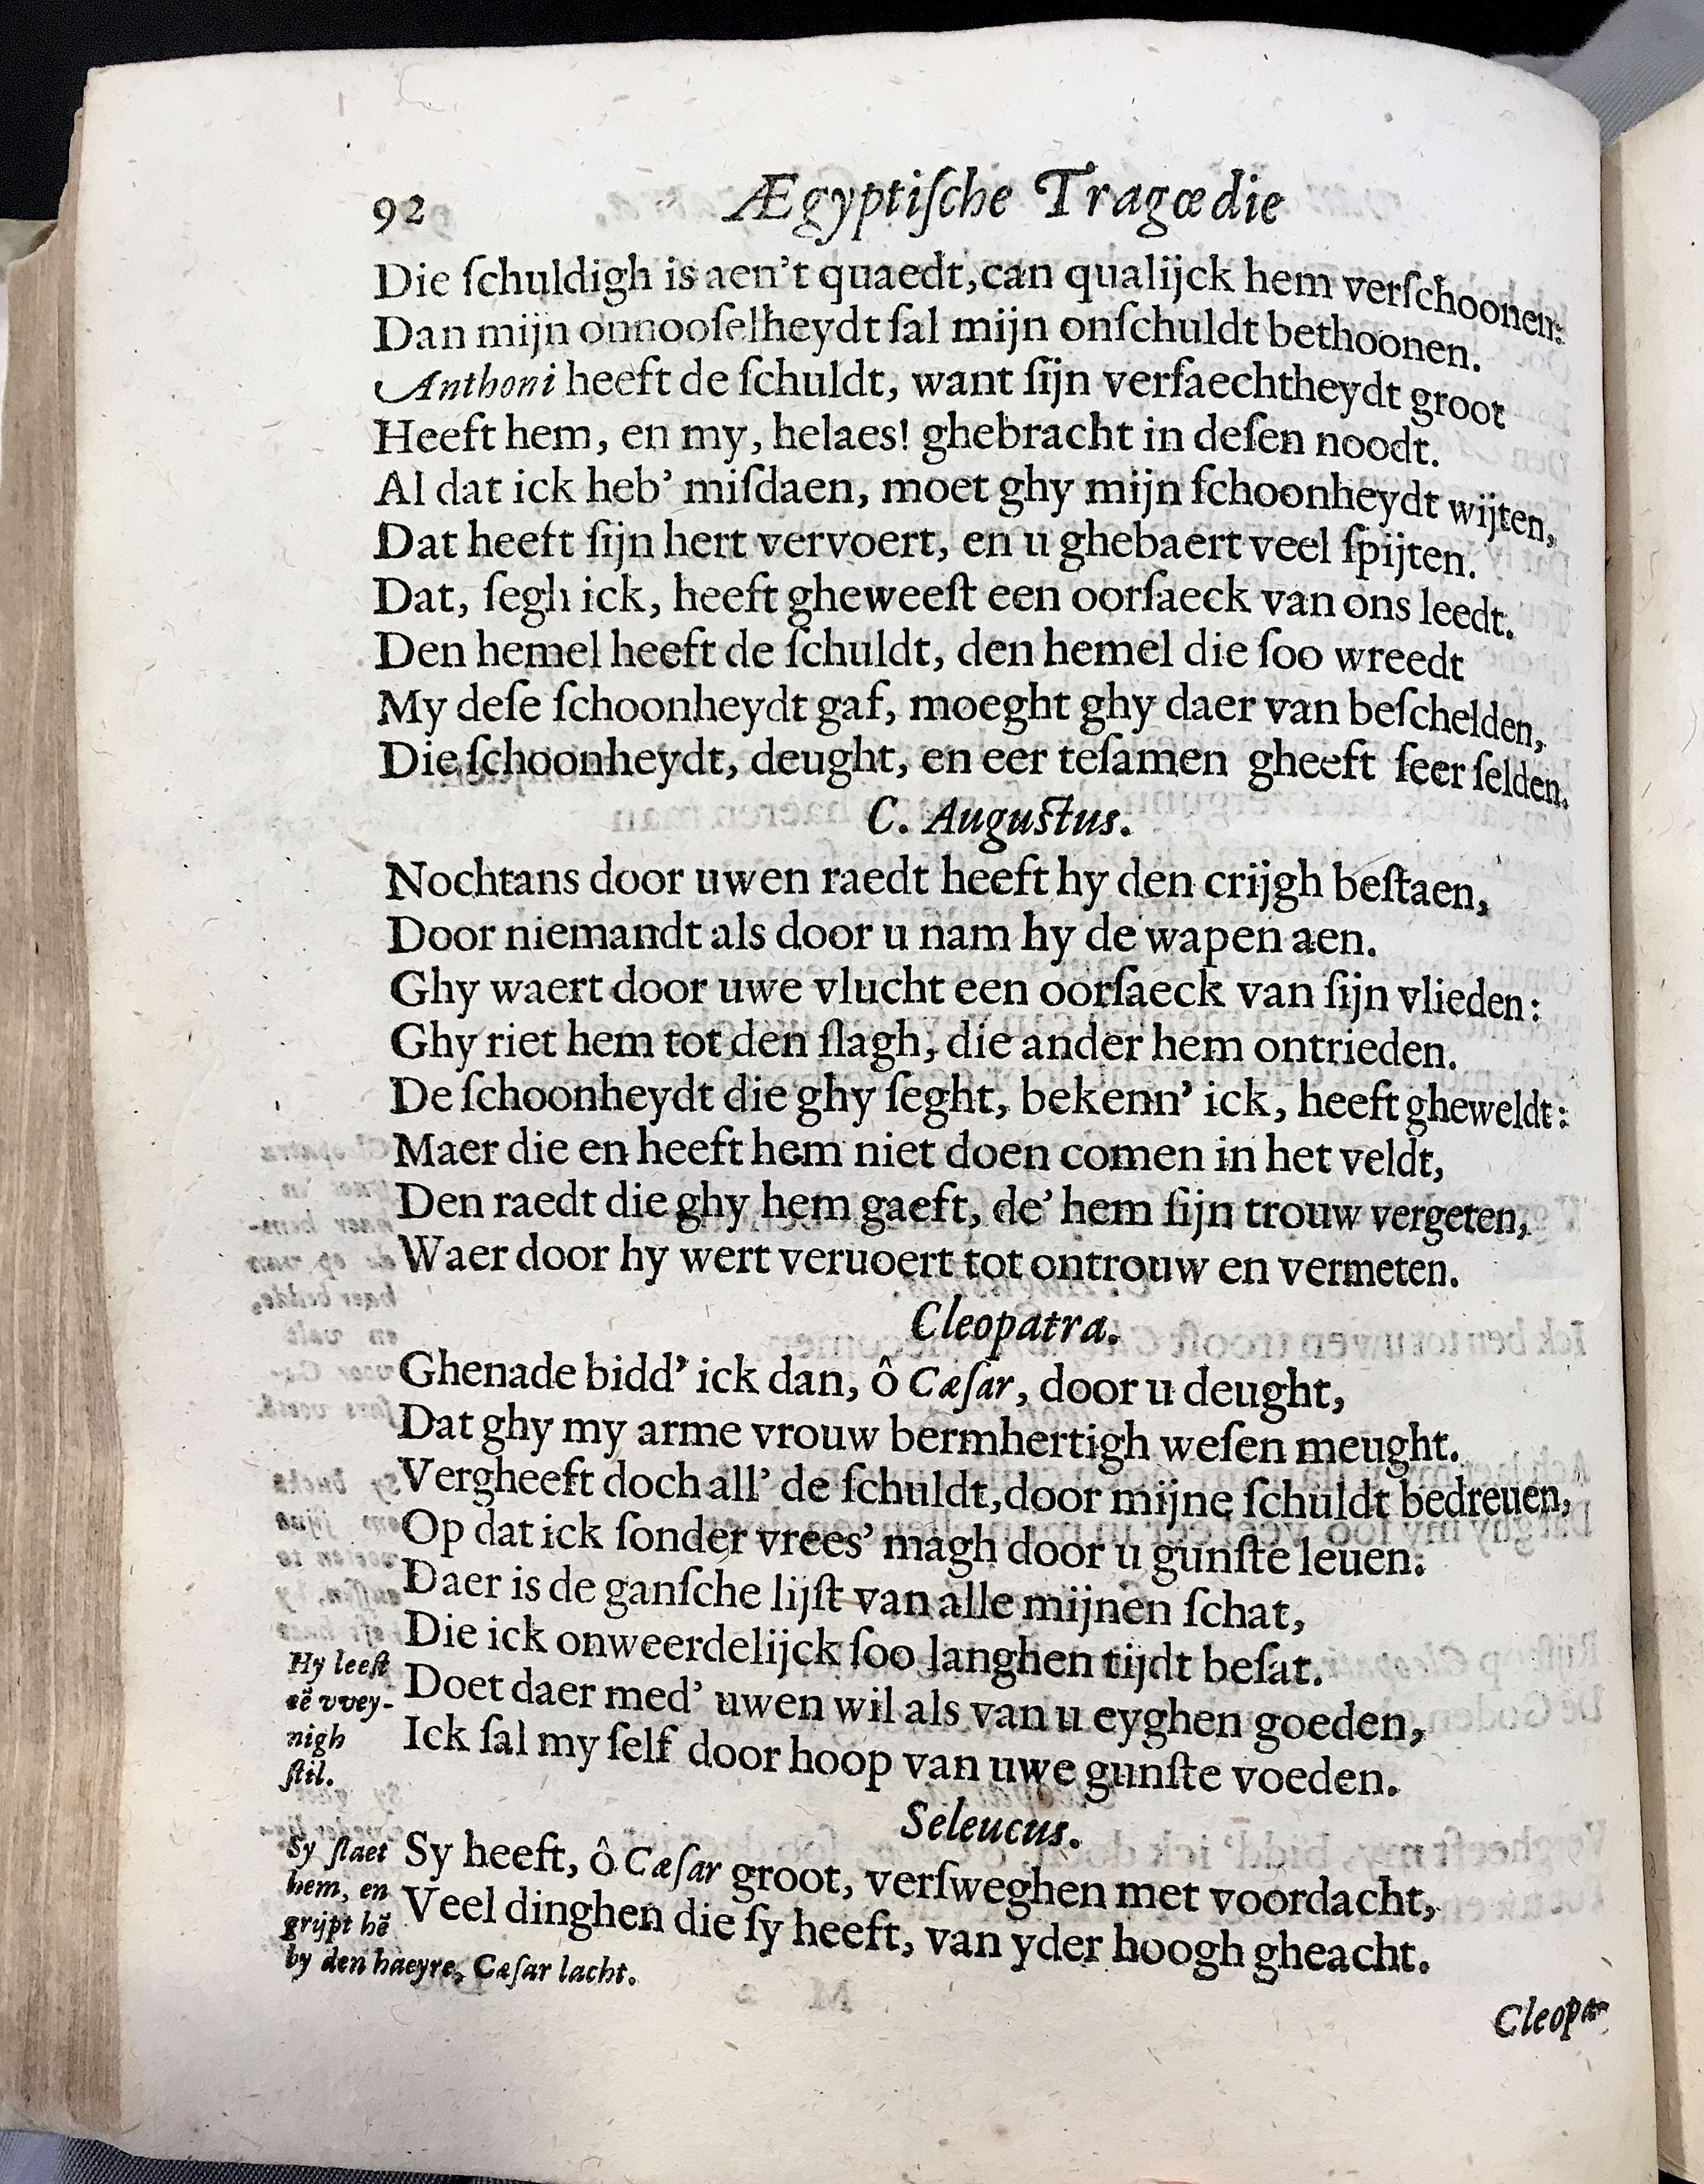 92 Ægyptiſche Tragœdie
Die ſchuldigh is aen't quaedt, can qualijck hem verſchoonen:
Dan mijn onnooſelheydt ſal mijn onſchuldt bethoonen.
Anthoni heeft de ſchuldt, want ſijn verſaechtheydt groot
Heeft hem, en my, helaes! ghebracht in deſen noodt.
Al dat ick heb' miſdaen, moet ghy mijn ſchoonheydt wijten,
Dat heeft ſijn hert vervoert, en u ghebaert veel ſpijten.
Dat, ſegh ick, heeft gheweeſt een oorſaeck van ons leedt.
Den hemel heeft de ſchuldt, den hemel die ſoo wreedt
My deſe ſchoonheydt gaf, moeght ghy daer van beſchelden,
Die ſchoonheydt, deught, en eer teſamen gheeft ſeer ſelden.
C. Auguſtus.
Nochtans door uwen raedt heeft hy den crijgh beſtaen,
Door niemandt als door u nam hy de wapen aen.
Ghy waert door uwe vlucht een oorſaeck van ſijn vlieden:
Ghy riet hem tot den ſlagh, die ander hem ontrieden.
De ſchoonheydt die ghy ſeght, bekenn' ick, heeft gheweldt:
Maer die en heeft hem niet doen comen in het veldt,
Den raedt die ghy hem gaeft, de' hem ſijn trouw vergeten,
Waer door hy wert veruoert tot ontrouw en vermeten.
Cleopatra.
Ghenade bidd' ick dan, ô Cæſar, door u deught,
Dat ghy my arme vrouw bermhertigh weſen meught.
Vergheeft doch all' de ſchuldt, door mijne ſchuldt bedreuen,
Op dat ick ſonder vrees' magh door u gunſte leuen.
Daer is de ganſche lijſt van alle mijnen ſchat,
Die ick onweerdelijck ſoo langhen tijdt beſat.
Doet daer med' uwen wil als van u eyghen goeden,
Ick ſal my ſelf door hoop van uwe gunſte voeden.
Hy leeſt
eẽ vvey-
nigh
ſtil.
Seleucus.
Sy heeft, ô Cæſar groot, verſweghen met voordacht,
Veel dinghen die ſy heeft, van yder hoogh gheacht.
Sy ſlaet
hem, en
grijpt hẽ
by den haeyre, Cæſar lacht.
Cleopa-